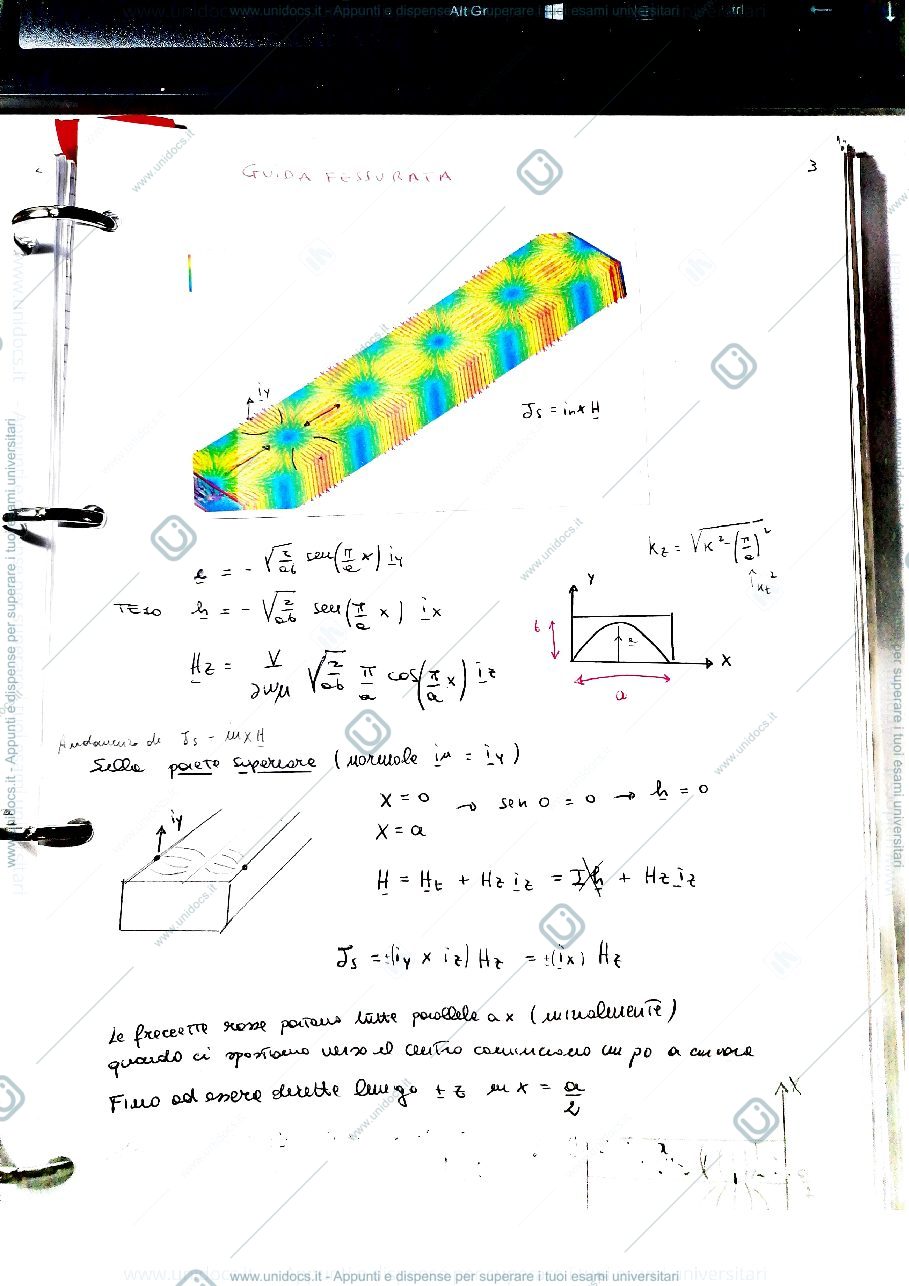 www.unidocs.it - Appunti e dispense per superare i tuoi esami universitari
Alt Gr
GUIDA FESSURATA
3
iy
Js = in x H
e = - √(2/ab) sen(π/a x) iy
kz = √(K² - (π/a)²)
↑ kt²
TE10 h = - √(2/ab) sen(π/a x) ix
y
b
e
x
a
Hz = V/jωμ √(2/ab) π/a cos(π/a x) iz
Andamento di Js = in x H
Sulla parete superiore (normale in = iy)
x = 0 → sen 0 = 0 → h = 0
x = a
iy
H = Ht + Hz iz = I h + Hz iz
Js = ±(iy x iz) Hz = ±(ix) Hz
Le freccette rosse partono tutte parallele a x (inizialmente)
quando ci spostiamo verso il centro cominciano un po a curvare
Fino ad essere dirette lungo ± z in x = a/2
x
www.unidocs.it - Appunti e dispense per superare i tuoi esami universitari